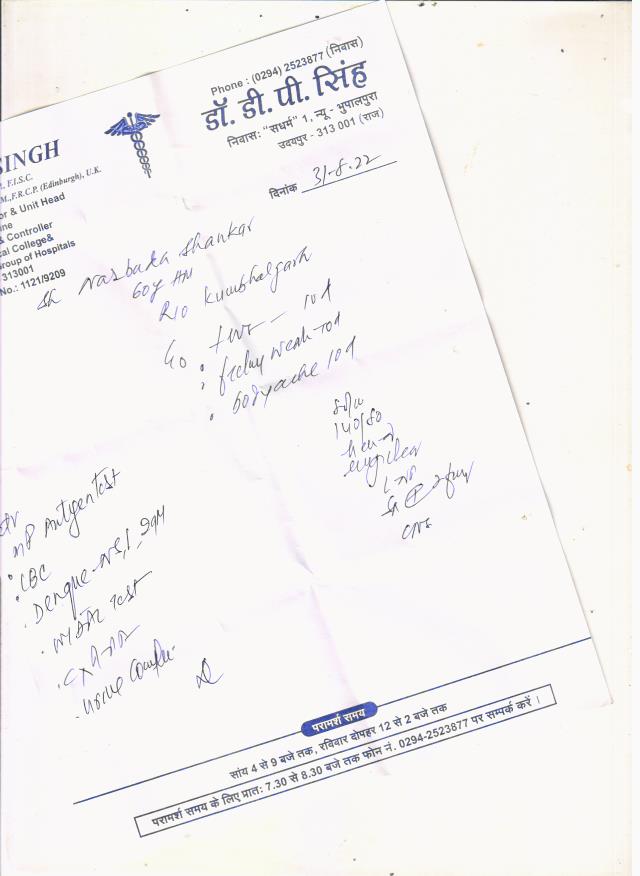 Phone : (0294) 2523877 (निवास)
डॉ. डी. पी. सिंह
निवास: "सधर्म" 1, न्यू - भुपालपुरा
उदयपुर - 313 001 (राज)
SINGH
F.I.S.C.
M.,F.R.C.P. (Edinburgh), U.K.
or & Unit Head
ine
& Controller
cal College&
Group of Hospitals
313001
No.: 1121/9209
दिनांक 31-8-22
Sh Narbada Shankar
60y
R/o Kumbhalgarh
C/o fever - 10d
feeling weak - 10d
bodyache 10d
140/80
CNS
MP Antigen test
CBC
Dengue - NS1, IgM
WIDAL test
Urine Comple
परामर्श समय
सांय 4 से 9 बजे तक, रविवार दोपहर 12 से 2 बजे तक
परामर्श समय के लिए प्रात: 7.30 से 8.30 बजे तक फोन नं. 0294-2523877 पर सम्पर्क करें ।